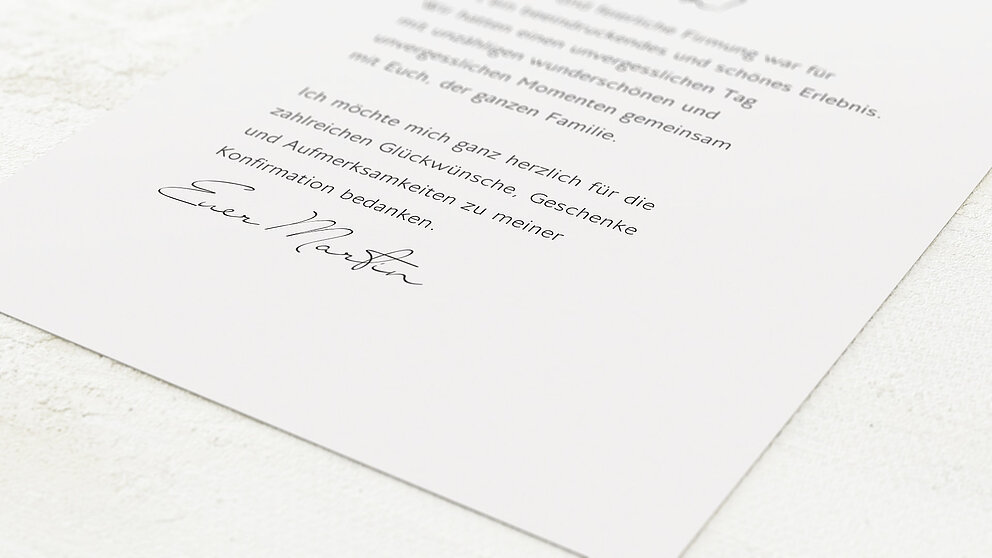 und feierliche Firmung war für
ein beeindruckendes und schönes Erlebnis.
Wir hatten einen unvergesslichen Tag
mit unzähligen wunderschönen und
unvergesslichen Momenten gemeinsam
mit Euch, der ganzen Familie.
Ich möchte mich ganz herzlich für die
zahlreichen Glückwünsche, Geschenke
und Aufmerksamkeiten zu meiner
Konfirmation bedanken.
Euer Martin